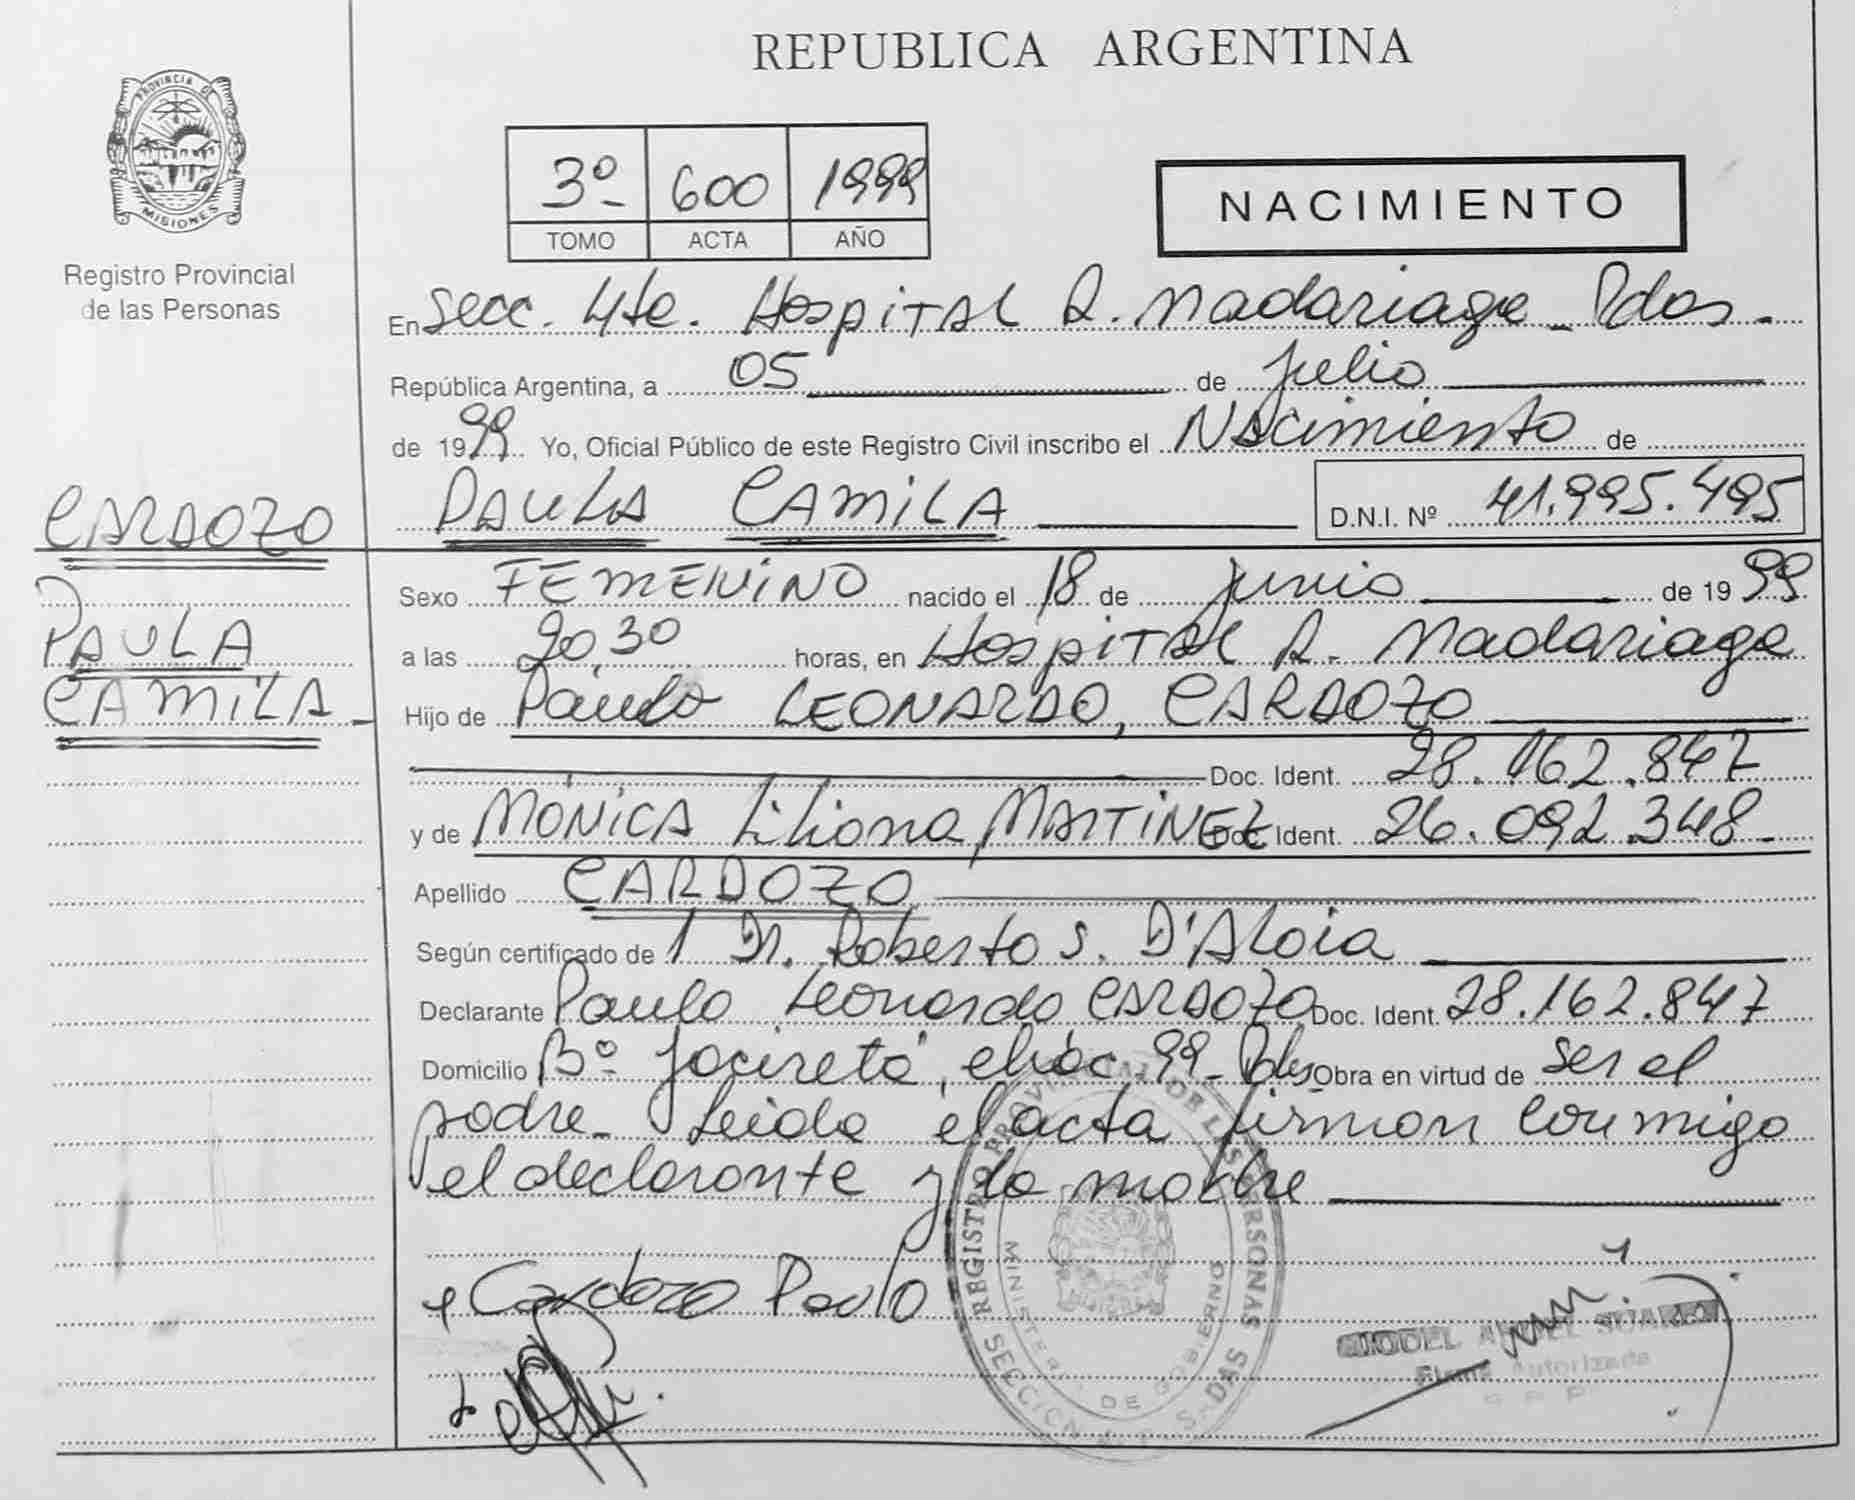 REPUBLICA ARGENTINA
PROVINCIA DE
MISIONES
Registro Provincial
de las Personas
3º 600 1999
TOMO ACTA AÑO
NACIMIENTO
En Secc. 4ta. Hospital R. Madariaga - Pdas -
República Argentina, a 05 de Julio
de 1999 Yo, Oficial Público de este Registro Civil inscribo el Nacimiento de
CARDOZO
PAULA CAMILA D.N.I. Nº 41.995.495
Sexo FEMENINO nacido el 18 de Junio de 1999
PAULA
a las 20,30 horas, en Hospital R. Madariaga
CAMILA -
Hijo de Paulo LEONARDO, CARDOZO
Doc. Ident. 28.162.847
y de MONICA Liliana MARTINEZ Doc. Ident. 26.092.348 -
Apellido CARDOZO
Según certificado de 1 Dr. Roberto S. D'Aloia
Declarante Paulo Leonardo CARDOZO Doc. Ident. 28.162.847
Domicilio Bº Jaciretá, chac 99 - Pdas Obra en virtud de ser el
padre - Leida el acta firman conmigo
el declarante y la madre
Cardozo Paulo
REGISTRO PROVINCIAL DE LAS PERSONAS
MINISTERIO DE GOBIERNO
SECCION
ANGEL SUAREZ
Firma Autorizada